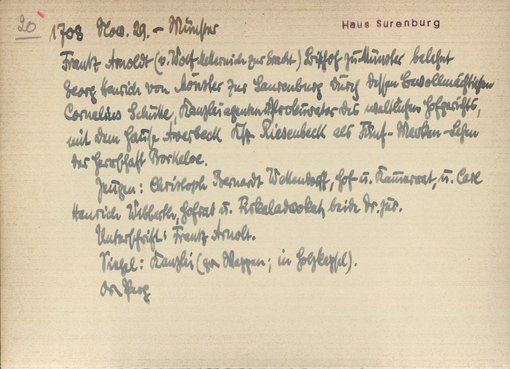 20
Haus Surenburg
1708 Nov. 29. - Münster
Frantz Arnoldt (v. Wolf-Metternich zur Gracht) Bischof zu Münster belehnt
Georg Henrich von Mönster zur Saurenburg durch dessen Bevollmächtigten
Cornelius Schütte, Kanzleiagenten u. Procurator des weltlichen Hofgerichts,
mit dem Hause Averbeck Ksp. Riesenbeck als Fünf-Marken-Lehen
der Herrschaft Borkeloe.
Zeugen: Christoph Bernardt Wettendorff, Hof- u. Kammerrat, u. Carl
Henrich Wibberth, Hofrat u. Fiskaladvokat, beide Dr. jur.
Unterschrift: Frantz Arnolt.
Siegel: Kanzlei (gr. Wappen; in Holzkapsel).
Or. Perg